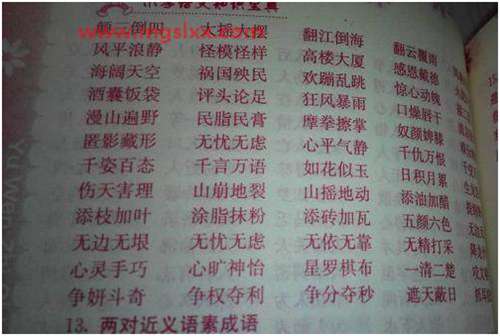 颠三倒四 大摇大摆 翻江倒海 翻云覆雨
风平浪静 怪模怪样 高楼大厦 感恩戴德
海阔天空 祸国殃民 欢蹦乱跳 惊心动魄
酒囊饭袋 评头论足 狂风暴雨 口燥唇干
漫山遍野 民脂民膏 摩拳擦掌 奴颜婢膝
匿影藏形 无忧无虑 心平气静 千仇万恨
千姿百态 千言万语 如花似玉 日积月累
伤天害理 山崩地裂 山摇地动 添油加醋
添枝加叶 涂脂抹粉 添砖加瓦 五颜六色
无边无垠 无忧无虑 无依无靠 无精打采
心灵手巧 心旷神怡 星罗棋布 一清二楚
争妍斗奇 争权夺利 争分夺秒 遮天蔽日
13. 两对近义语素成语